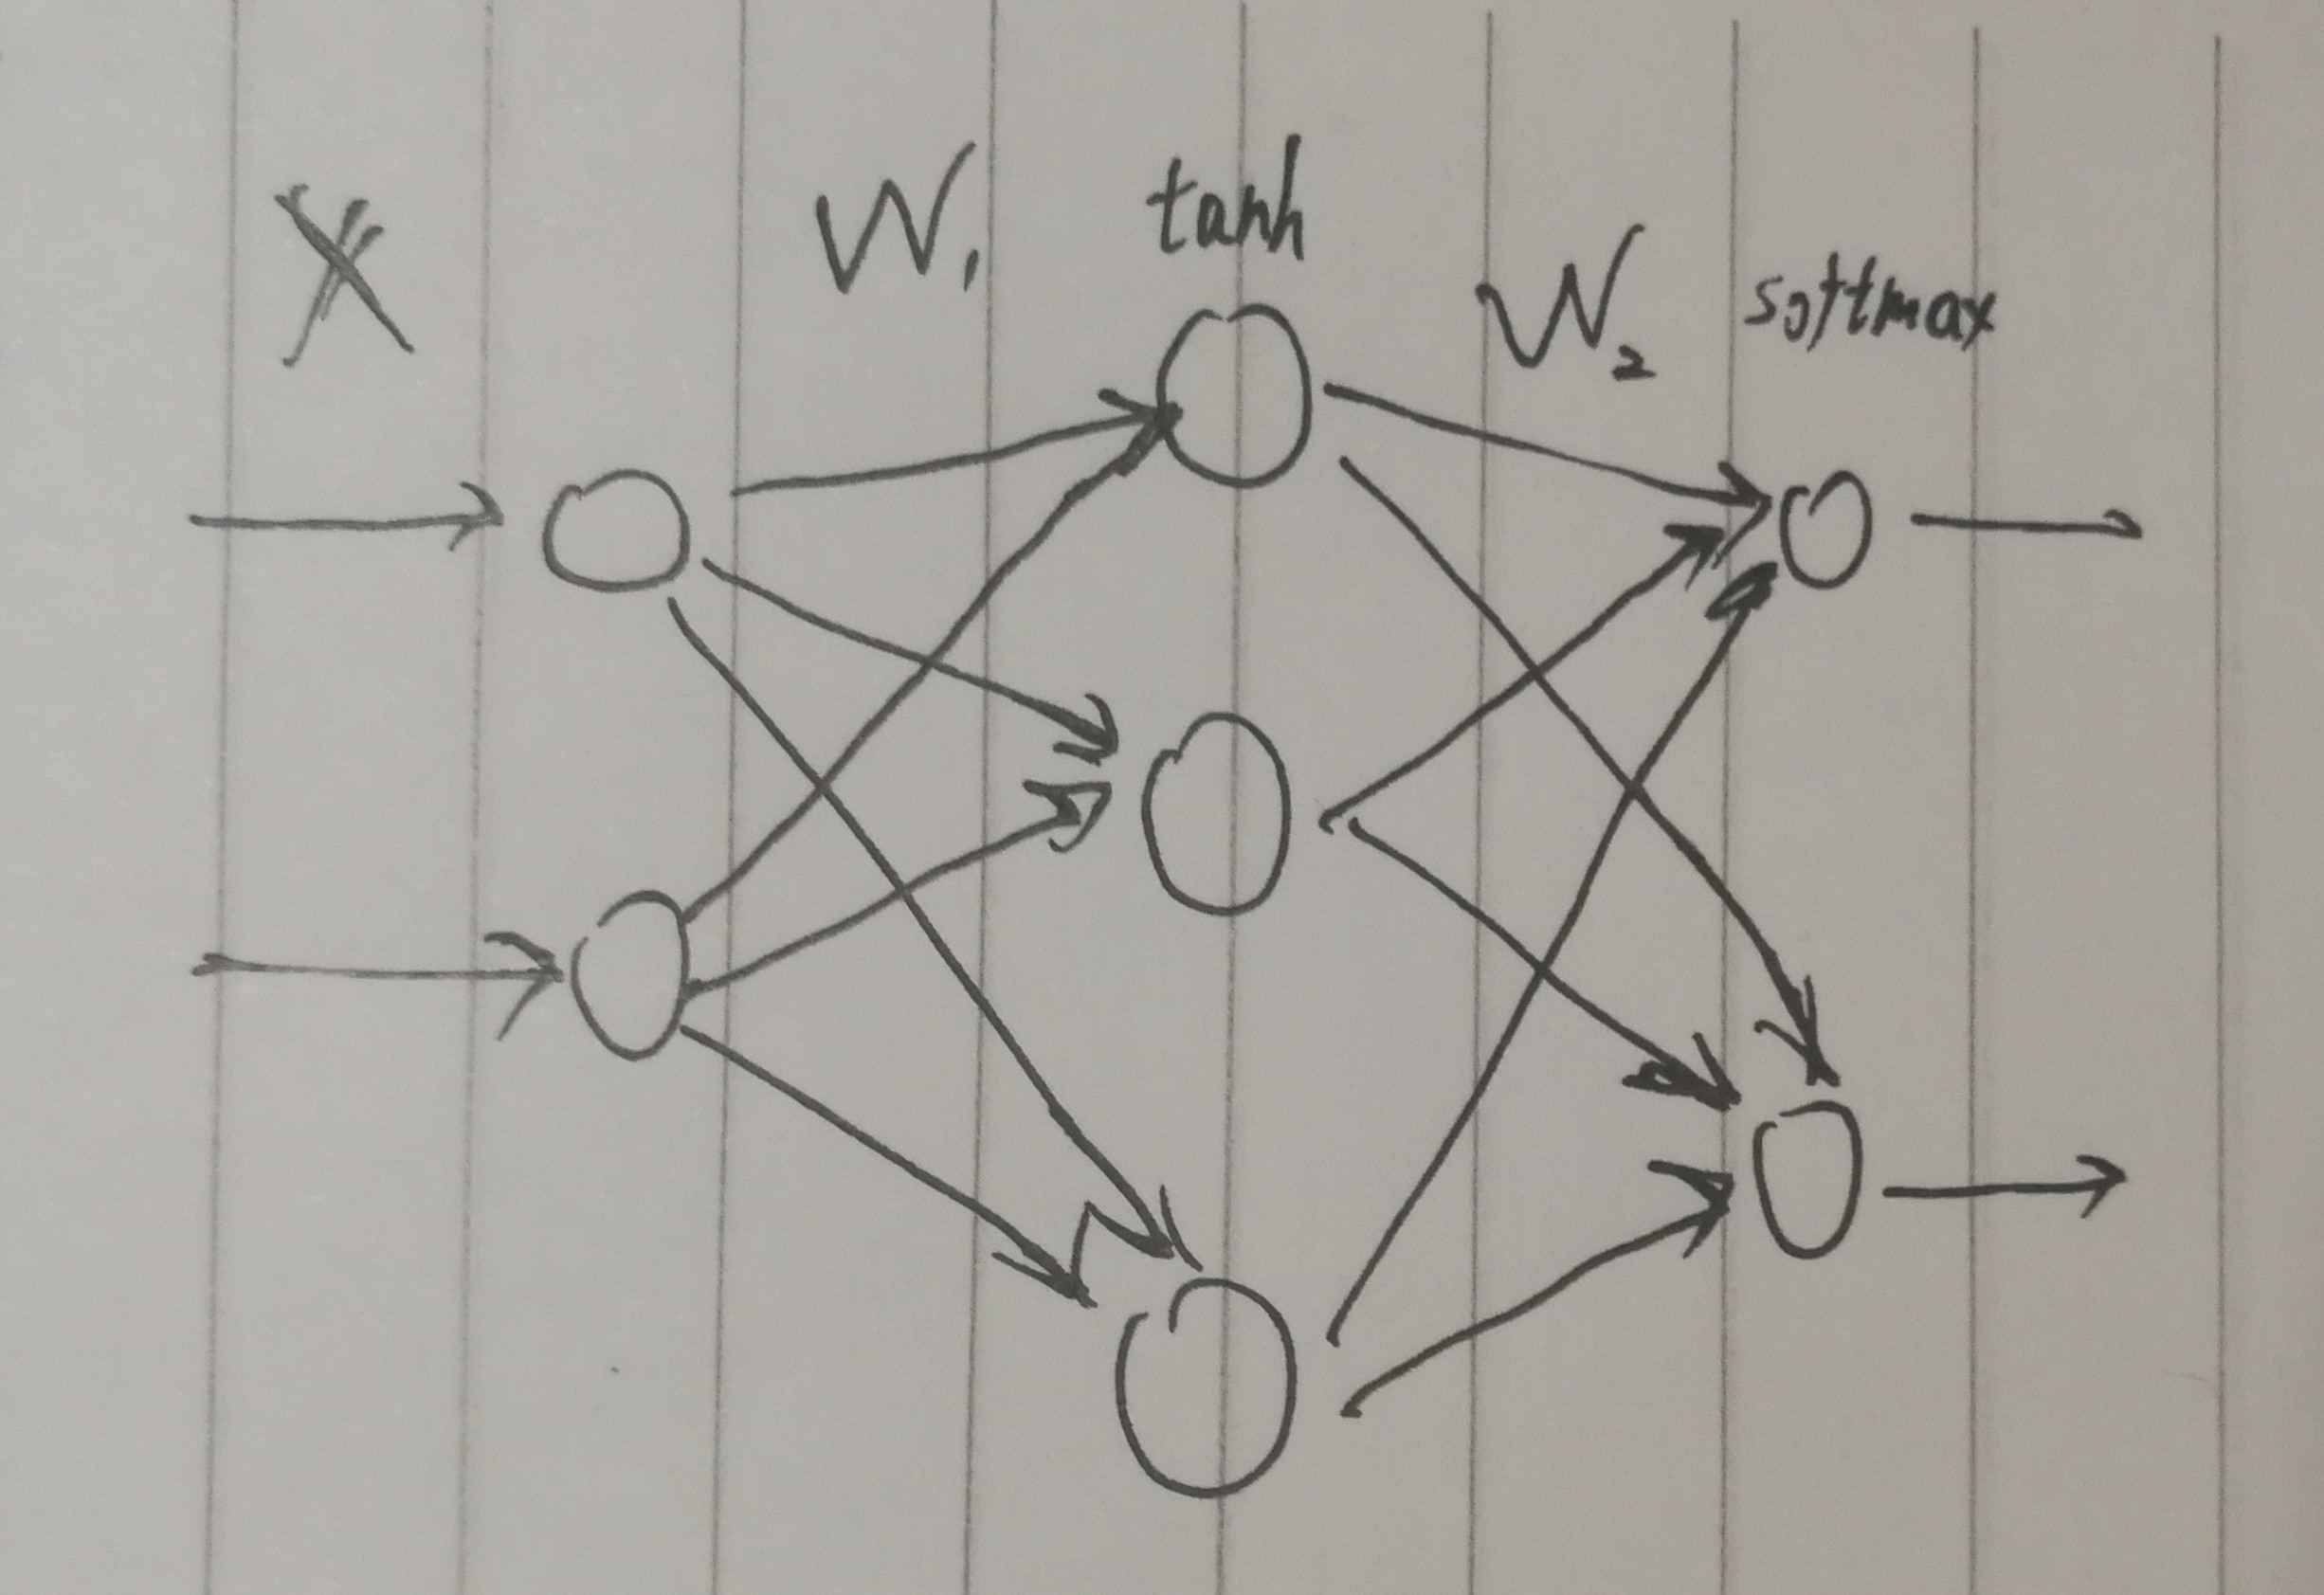 X
W₁
tanh
W₂
softmax